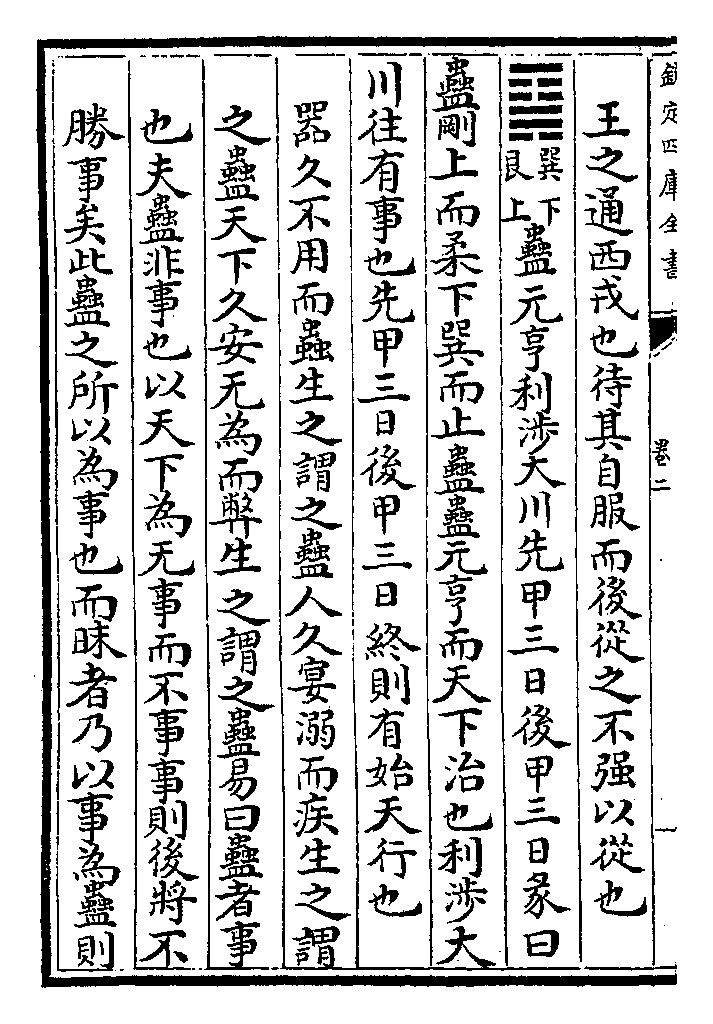 欽定四庫全書
卷二
一
王之通西戎也待其自服而後從之不强以從也
䷑巽下艮上蠱元亨利涉大川先甲三日後甲三日彖曰
蠱剛上而柔下巽而止蠱蠱元亨而天下治也利涉大
川往有事也先甲三日後甲三日終則有始天行也
器久不用而蟲生之謂之蠱人久宴溺而疾生之謂
之蠱天下久安无為而弊生之謂之蠱易曰蠱者事
也夫蠱非事也以天下為无事而不事事則後將不
勝事矣此蠱之所以為事也而昧者乃以事為蠱則